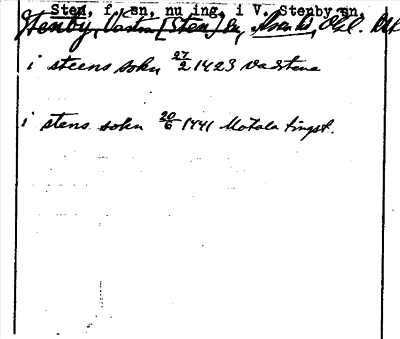 Sten, f. sn, nu ing. i V. Stenby sn.
Stenby, Västra [Sten] sn, Askeds, Ögl.
i steens sokn 27/2 1423 Vadstena
i stens sokn 20/6 1441 Motala tingst.